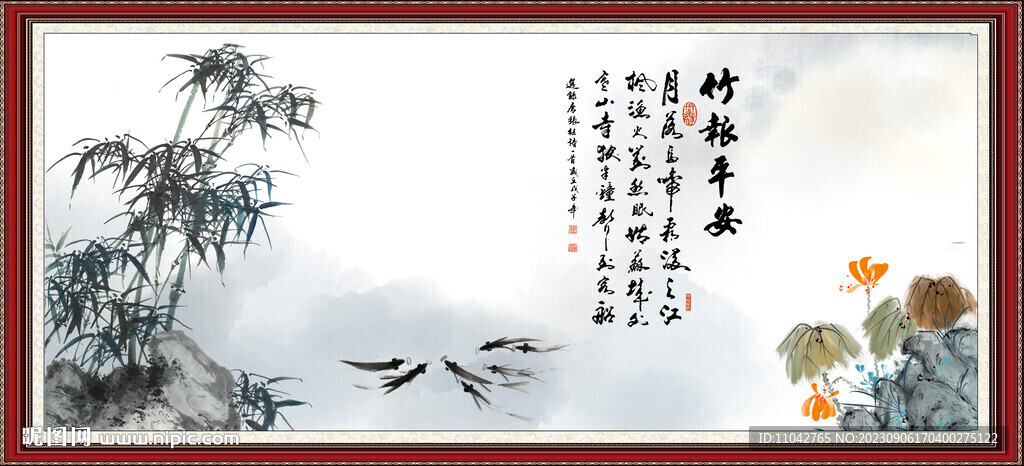 竹報平安
月落烏啼霜滿天江
楓漁火對愁眠姑蘇城外
寒山寺夜半鐘聲到客船
選錄唐張繼詩一首歲在戊子年
昵图网 www.nipic.com
ID:11042765 NO:20230906170400275122